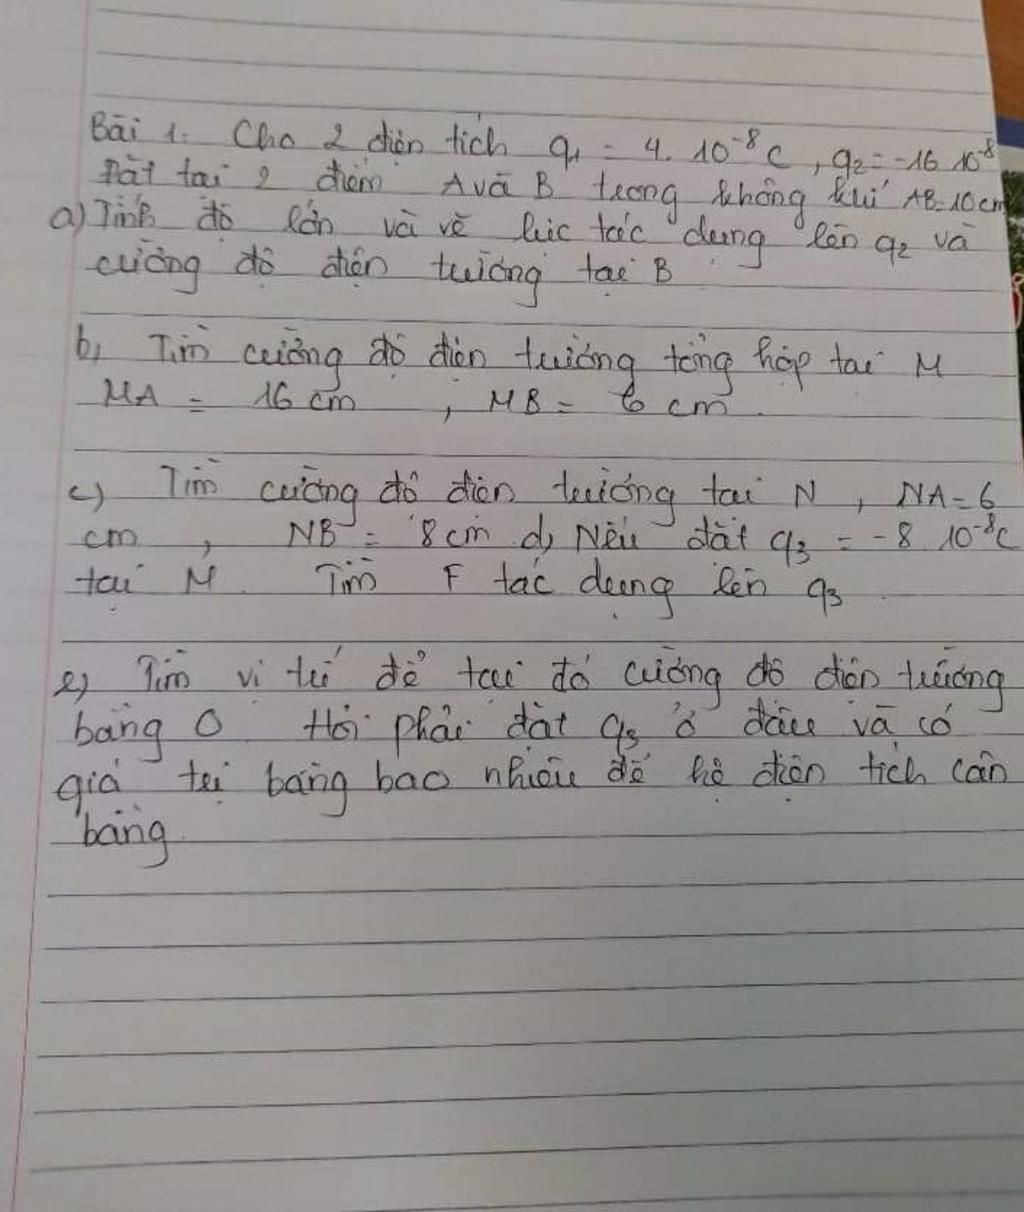 Bài 1. Cho 2 điện tích q1 = 4. 10⁻⁸ C , q2 = -16 10⁻⁸
Đặt tại 2 điểm A và B trong không khí AB=10cm
a) Tính độ lớn và vẽ lực tác dụng lên q2 và
cường độ điện trường tại B
b, Tìm cường độ điện trường tổng hợp tại M
MA = 16 cm , MB = 6 cm
c) Tìm cường độ điện trường tại N , NA=6
cm , NB = 8cm d, Nếu đặt q3 = -8 10⁻⁸C
tại M Tìm F tác dụng lên q3
e) Tìm vị trí để tại đó cường độ điện trường
bằng 0 Hỏi phải đặt q3 ở đâu và có
giá trị bằng bao nhiêu để hệ điện tích cân
bằng.